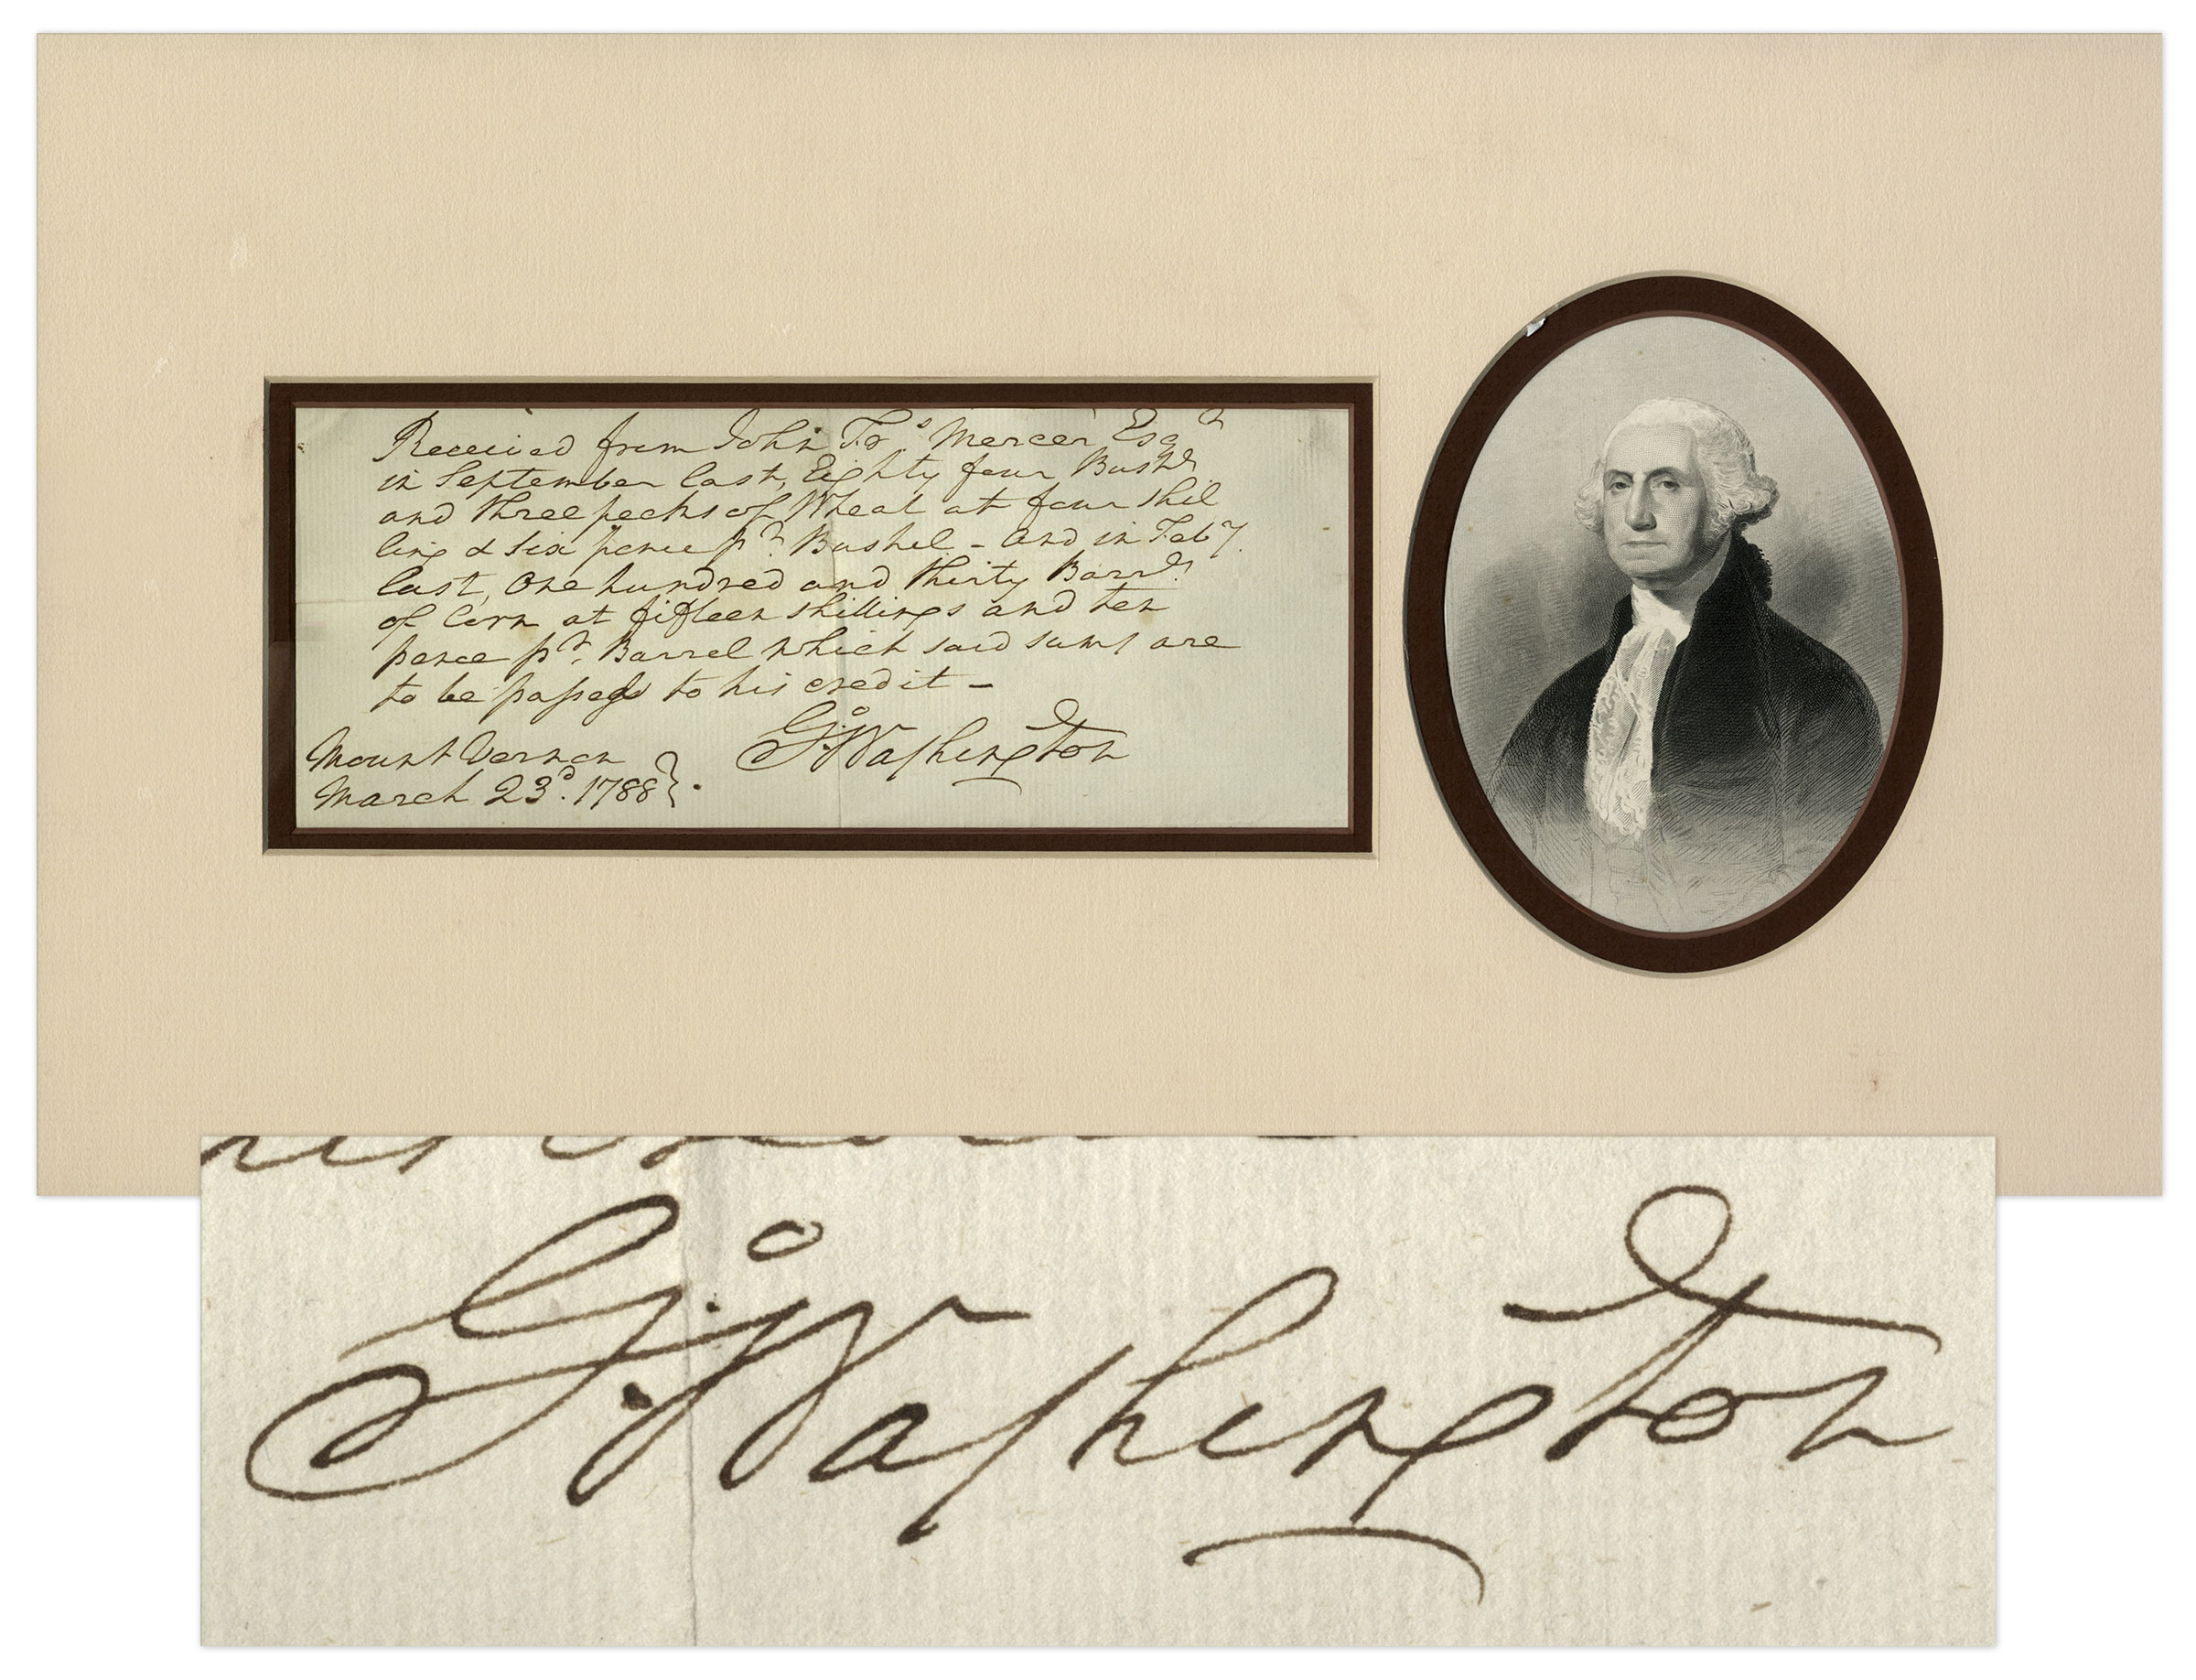 Received from John Fr.s Mercer Esqr
in September last, Eighty four Bushls
and three pecks of Wheat at four shil
ling & six pence pr. Bushel – and in Feby.
last, One hundred and thirty Barrls
of Corn at fifteen shillings and ten
pence pr. Barrel which said sums are
to be passed to his credit –
Go: Washington
Mount Vernon
March 23d. 1788
his credit
Go: Washington